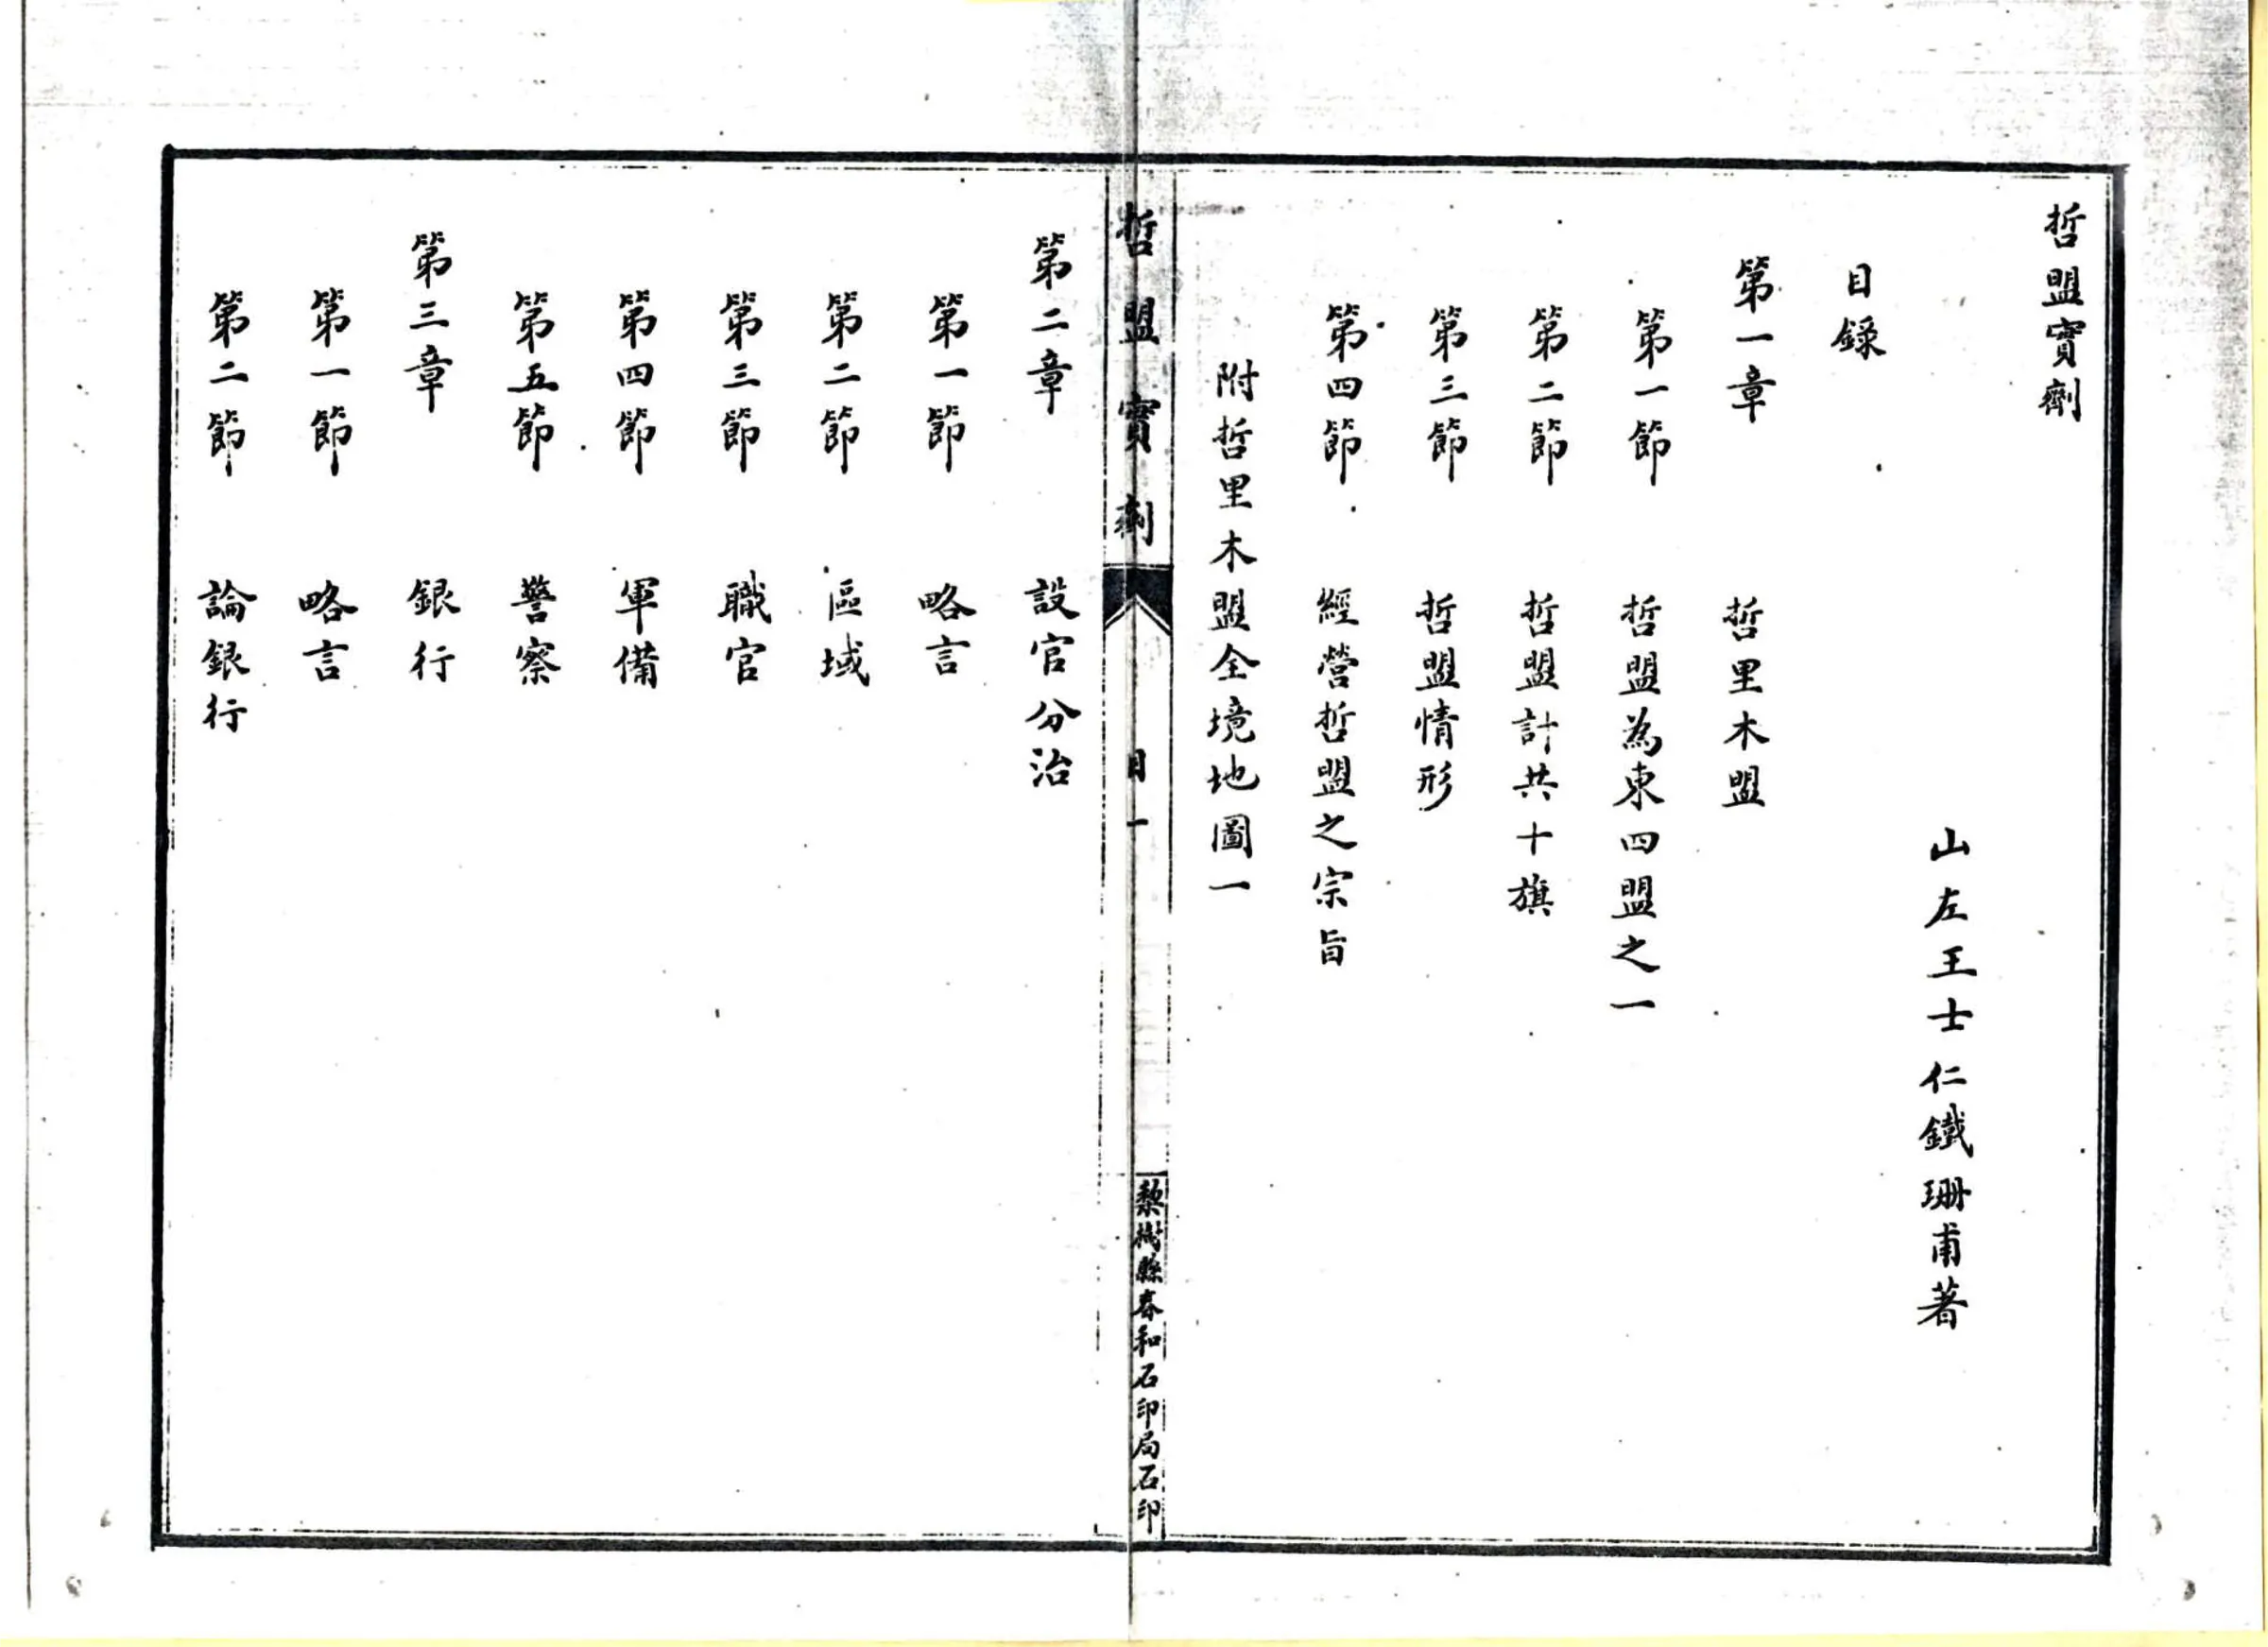 哲盟實劑
山左王士仁鐵珊甫著
目錄
第一章 哲里木盟
第一節 哲盟為東四盟之一
第二節 哲盟計共十旗
第三節 哲盟情形
第四節 經營哲盟之宗旨
附哲里木盟全境地圖一
哲盟實劑 目一 黎樹縣春和石印局石印
第二章 設官分治
第一節 略言
第二節 區域
第三節 職官
第四節 軍備
第五節 警察
第三章 銀行
第一節 略言
第二節 論銀行